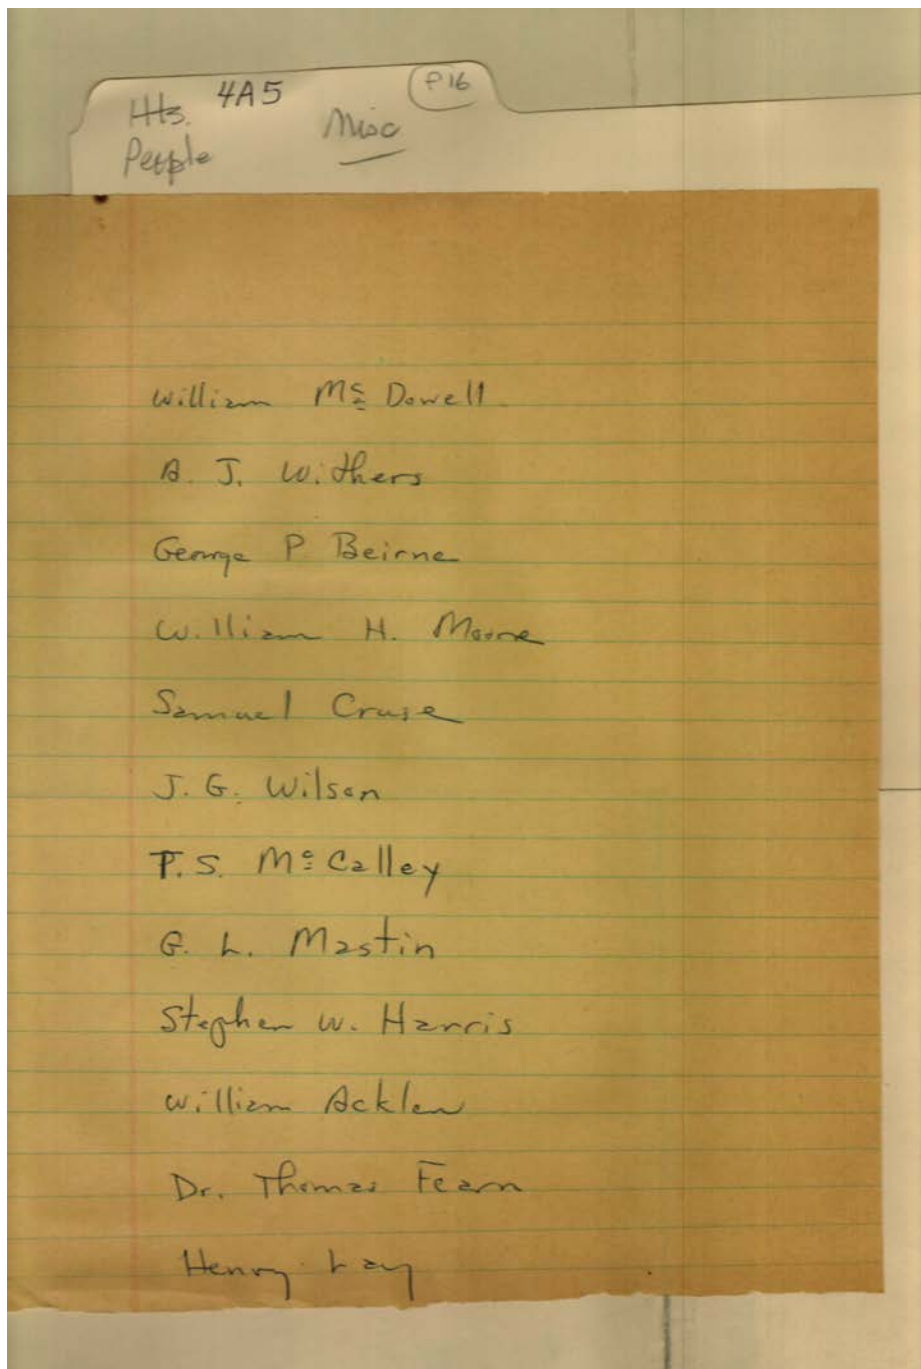 Hts. 4A5 P16
People Misc
William McDowell
A. J. Withers
George P Beirne
William H. Moore
Samuel Cruse
J. G. Wilson
T. S. McCalley
G. L. Mastin
Stephen W. Harris
William Acklen
Dr. Thomas Fearn
Henry Lay